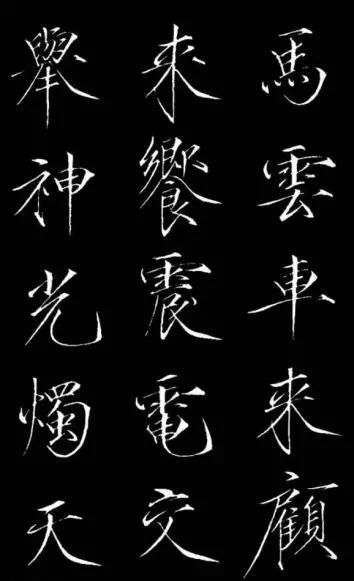 馬雲車來顧
來饗震電交
舉神光燭天